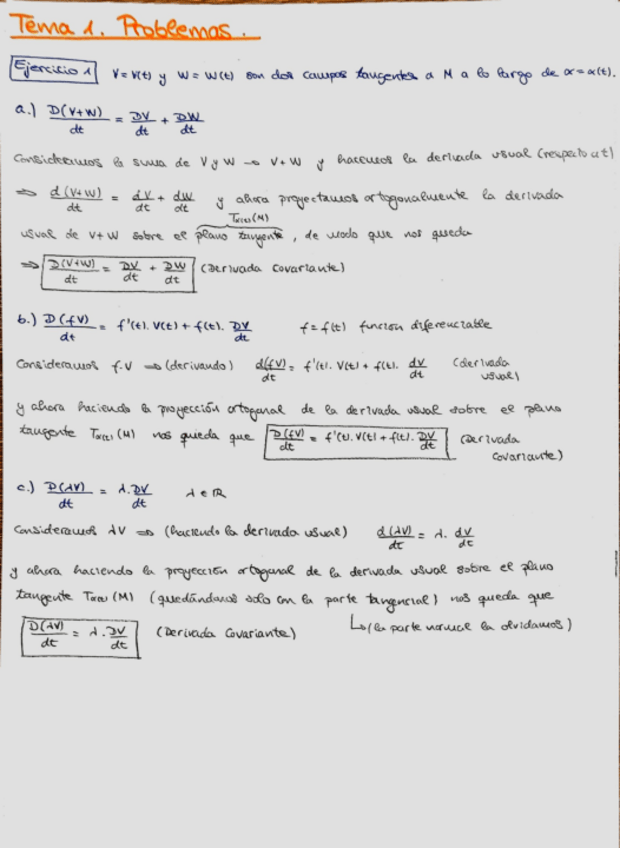 Tema 1. Problemas.
Ejercicio 1 V=V(t) y W=W(t) son dos campos tangentes a M a lo largo de α=α(t).
a.) D(V+W)/dt = DV/dt + DW/dt
Consideramos la suma de V y W → V+W y hacemos la derivada usual (respecto a t)
⇒ d(V+W)/dt = dV/dt + dW/dt y ahora proyectamos ortogonalmente la derivada
Tα(t)(M)
usual de V+W sobre el plano tangente, de modo que nos queda
⇒ D(V+W)/dt = DV/dt + DW/dt (Derivada Covariante)
b.) D(fV)/dt = f'(t). V(t) + f(t). DV/dt f=f(t) función diferenciable
Consideramos f.V ⇒ (derivando) d(fV)/dt = f'(t). V(t) + f(t). dV/dt (derivada usual)
y ahora haciendo la proyección ortogonal de la derivada usual sobre el plano
tangente Tα(t)(M) nos queda que D(fV)/dt = f'(t).V(t) + f(t). DV/dt (Derivada Covariante)
c.) D(λV)/dt = λ. DV/dt λ ∈ ℝ
Consideramos λV ⇒ (haciendo la derivada usual) d(λV)/dt = λ. dV/dt
y ahora haciendo la proyección ortogonal de la derivada usual sobre el plano
tangente Tα(t)(M) (quedándonos solo con la parte tangencial) nos queda que
D(λV)/dt = λ. DV/dt (Derivada Covariante) ↳ (la parte normal la olvidamos)